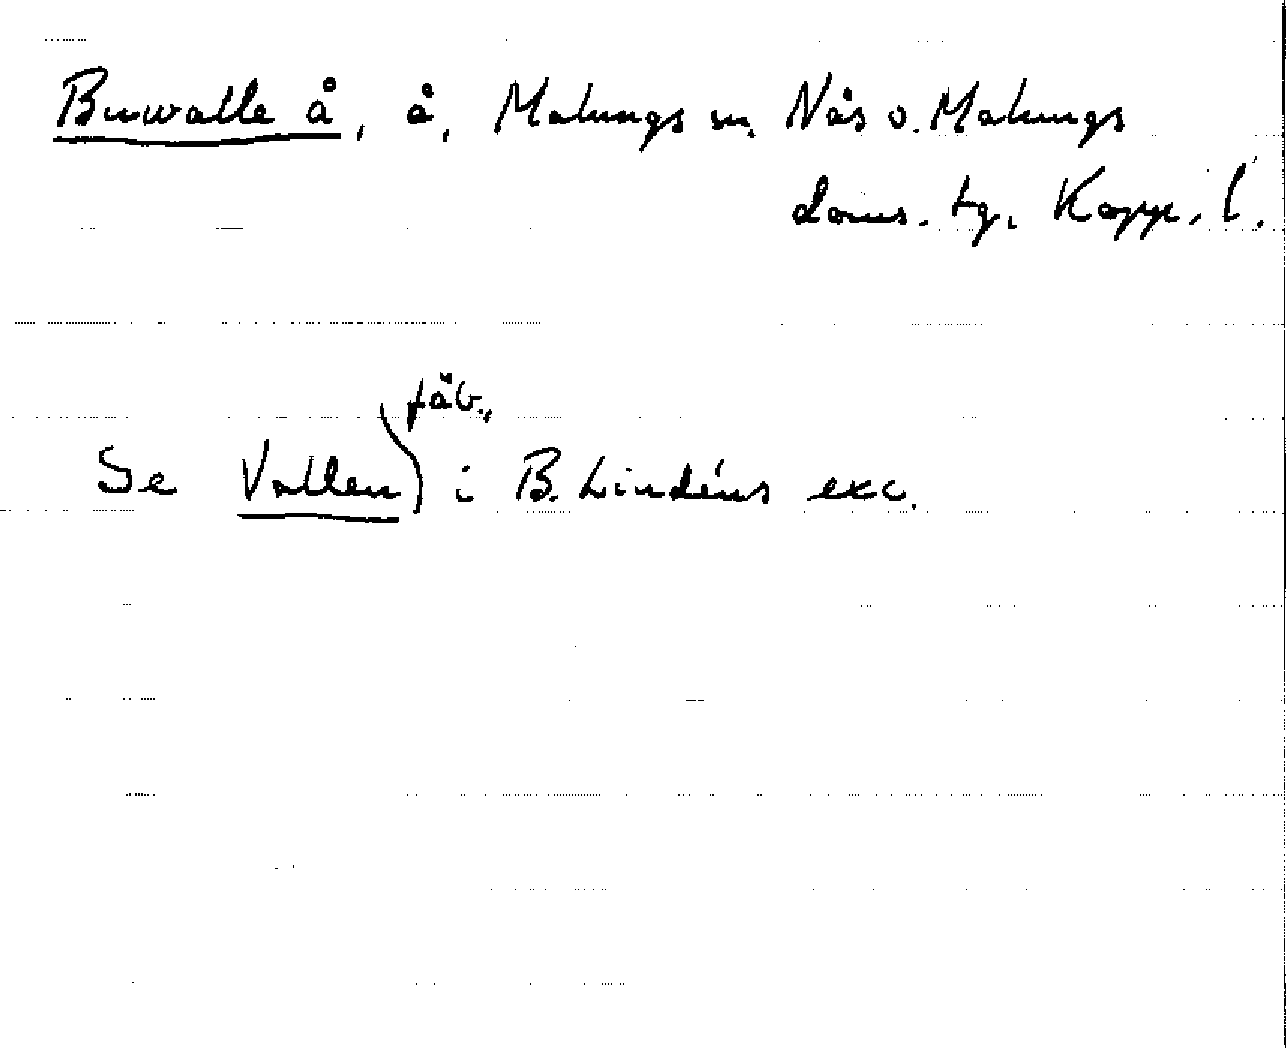 Buwalle å, å, Malungs sn, Nås o. Malungs
doms. tg. Kopp. l.
fäb.,
Se Vallen i B. Lindéns exc.